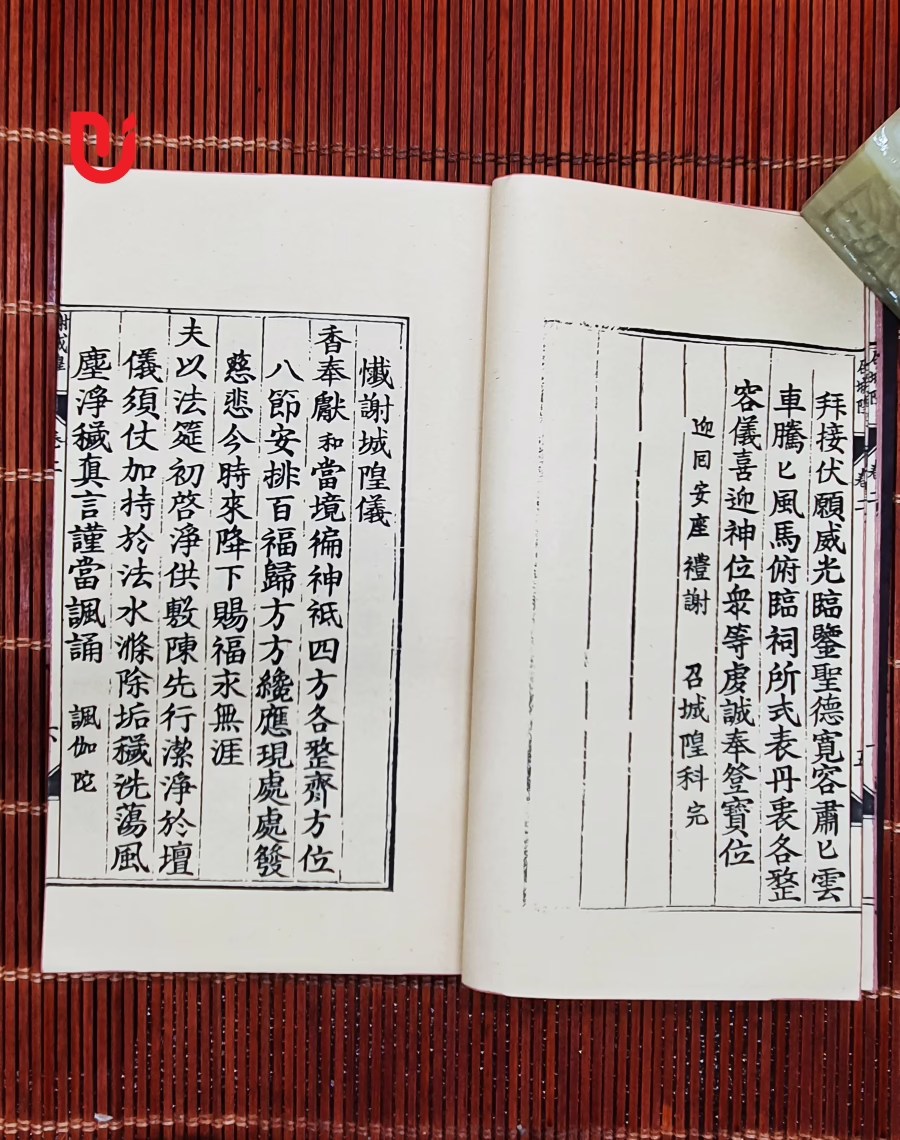 拜接伏願威光臨鑒聖德寬容肅匕雲
車騰匕風馬俯臨祠所式表丹衷各整
容儀喜迎神位衆等虔誠奉登寶位
迎囘安座禮謝 召城隍科完
懺謝城隍儀
香奉獻和當境徧神祗四方各整齊方位
八節安排百福歸方方纔應現處處發
慈悲今時來降下賜福求無涯
夫以法筵初啓淨供敷陳先行潔淨於壇
儀須仗加持於法水滌除垢穢洗蕩風
塵淨穢真言謹當諷誦 諷伽陀